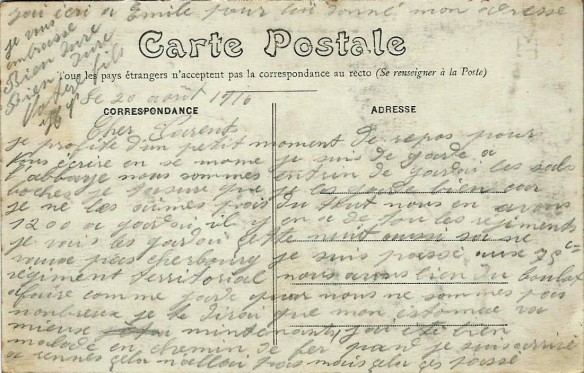 j'ai écri a Emile pour lui donné mon adresse
je vous
embrasse
Bien
Bien
fils
Carte Postale
Tous les pays étrangers n'acceptent pas la correspondance au recto (Se renseigner à la Poste)
Le 20 août 1916
CORRESPONDANCE
ADRESSE
Cher Parents
je profite d'un petit moment de repos pour
vous écrire en se moment je suis de garde a
l'abbaye nous sommes entrin de gardai les sals
boches je vous jure que je les garde bien car
je ne les aimes pas du tout nous en avons
1200 a gardai il y en a de tou les régiments
je vais les gardai cette nuit aussi sa ne
vaux pas cherbourg je suis passé aux 78e
régiment territorial nous avons bien du boulau
afaire comme garde quar nous ne sommes pas
nombreux je te dirai que mon estomac va
mieux mintenant j'ai été bien
malade en chemin de fer quand je suis arrivé
a rennes cela n'allait pas mais cela ces passé